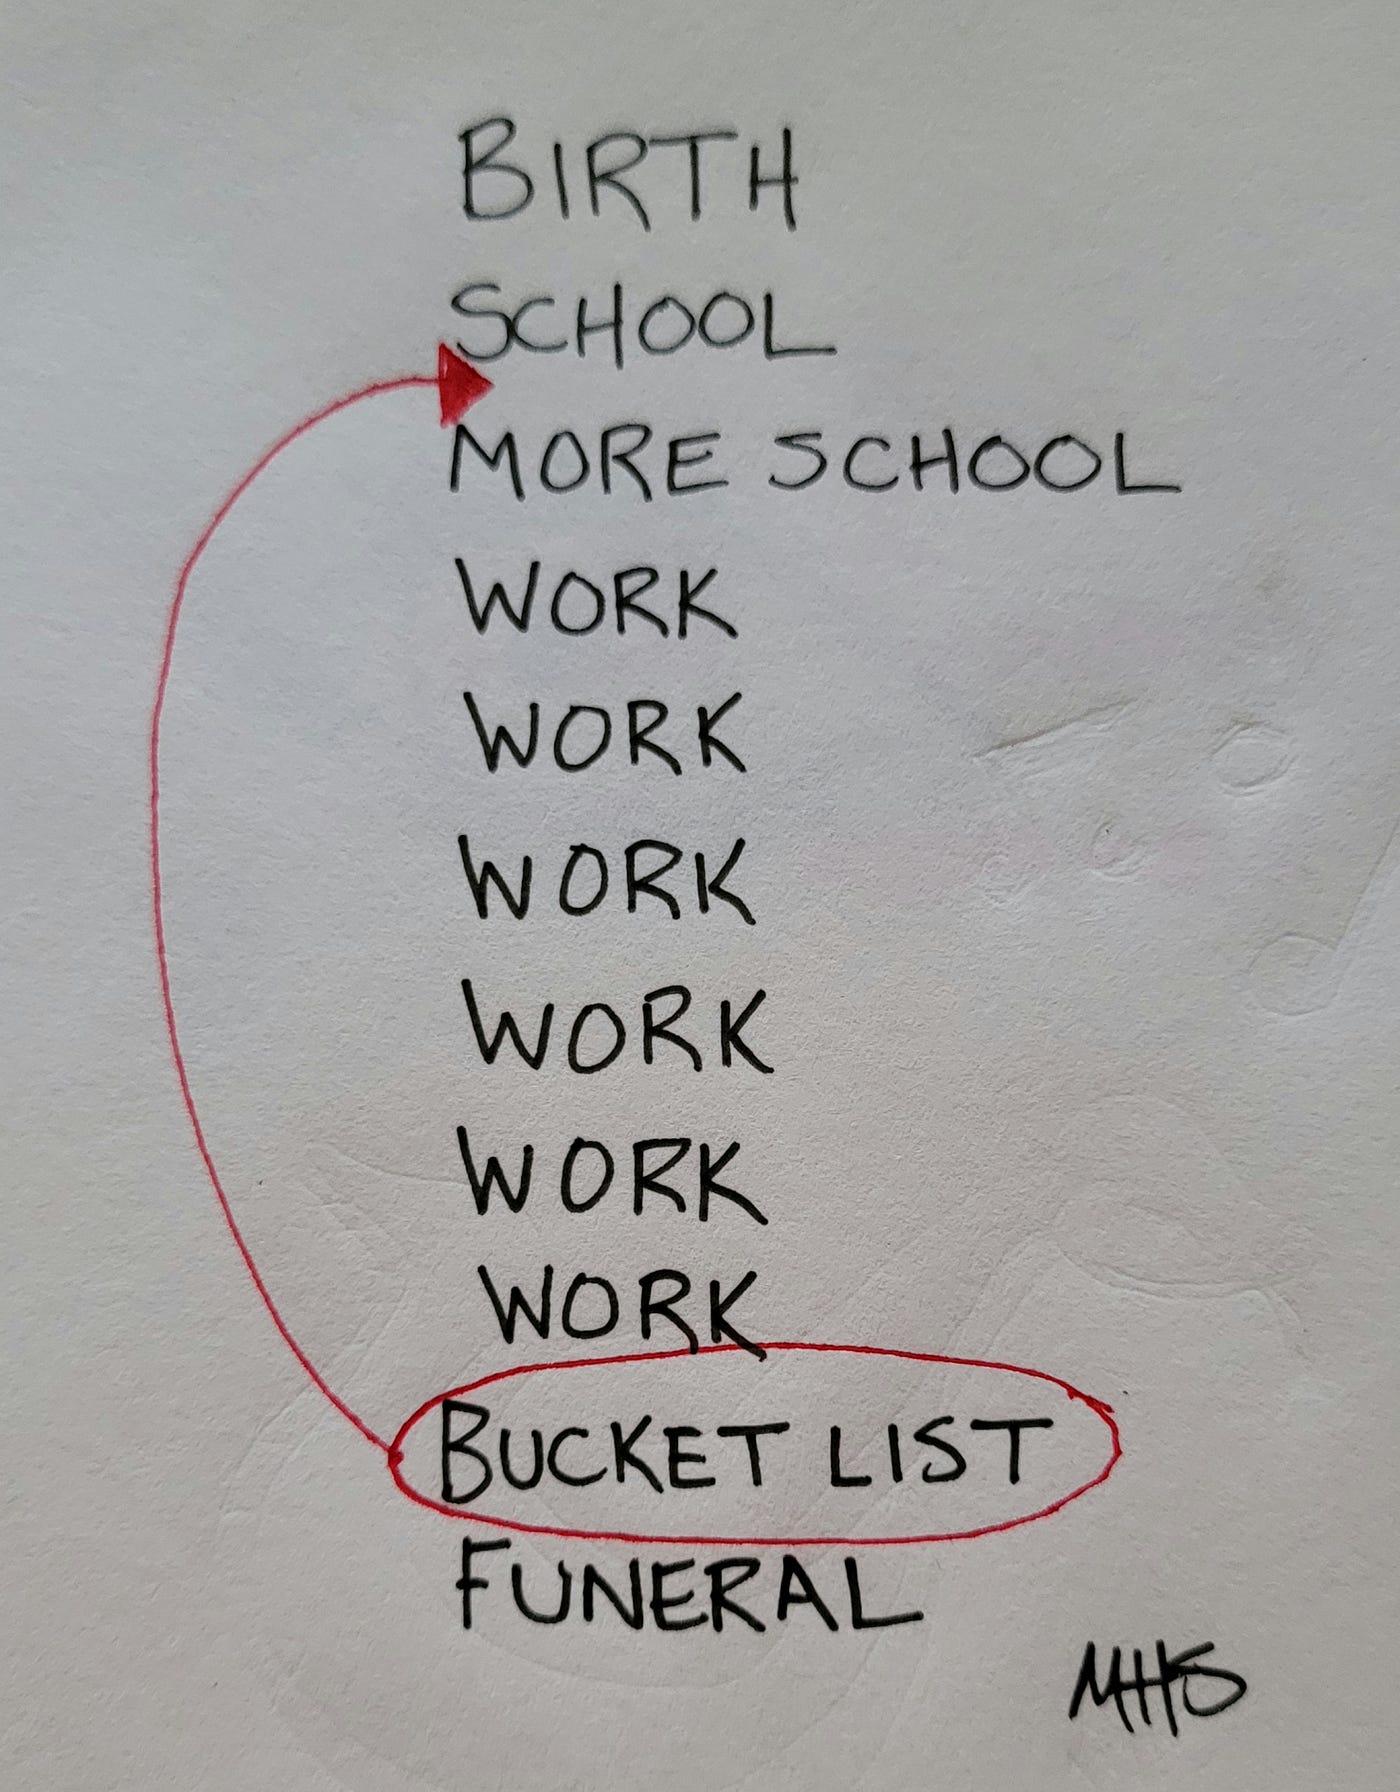 BIRTH
SCHOOL
MORE SCHOOL
WORK
WORK
WORK
WORK
WORK
WORK
BUCKET LIST
FUNERAL
MHS